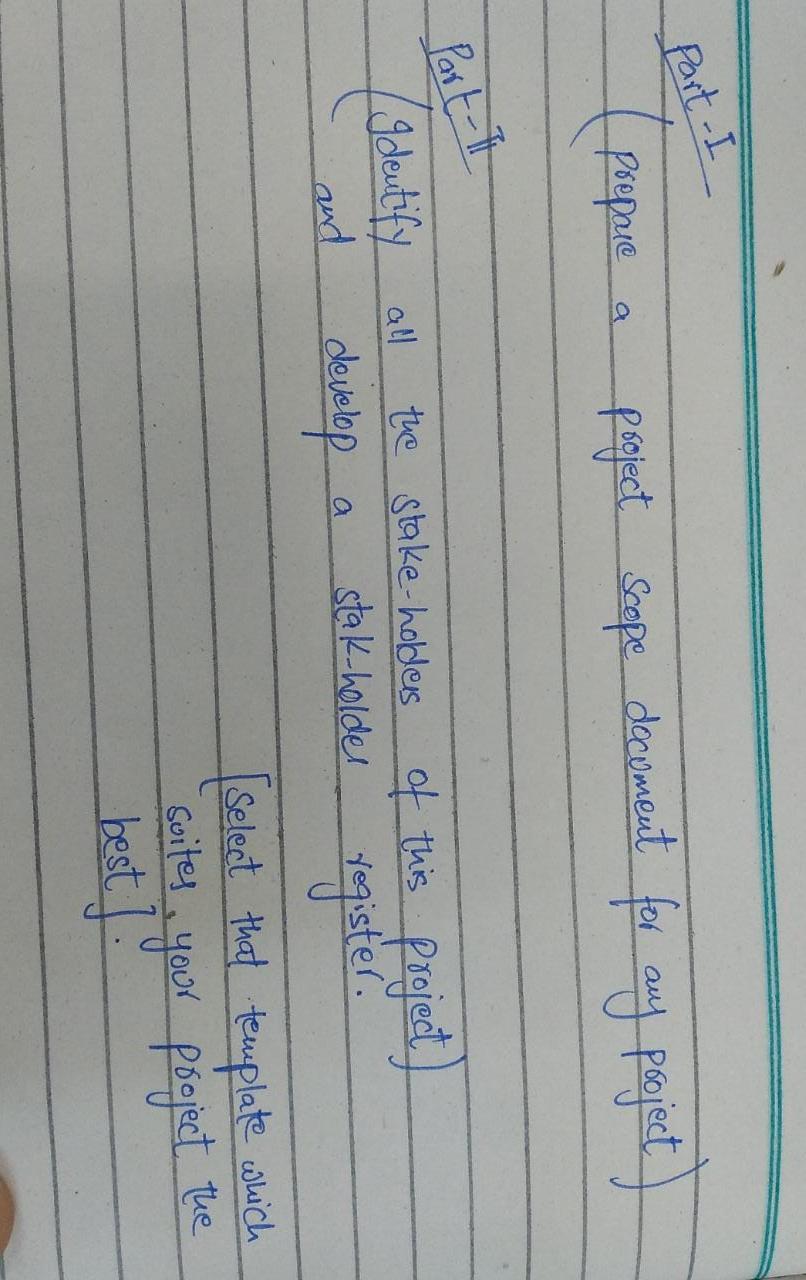 Part-I
(prepare a project scope document for any project)
Part-II
(Identify all the stake-holders of this project)
and develop a stak-holder register.
[Select that template which
suites your project the
best].